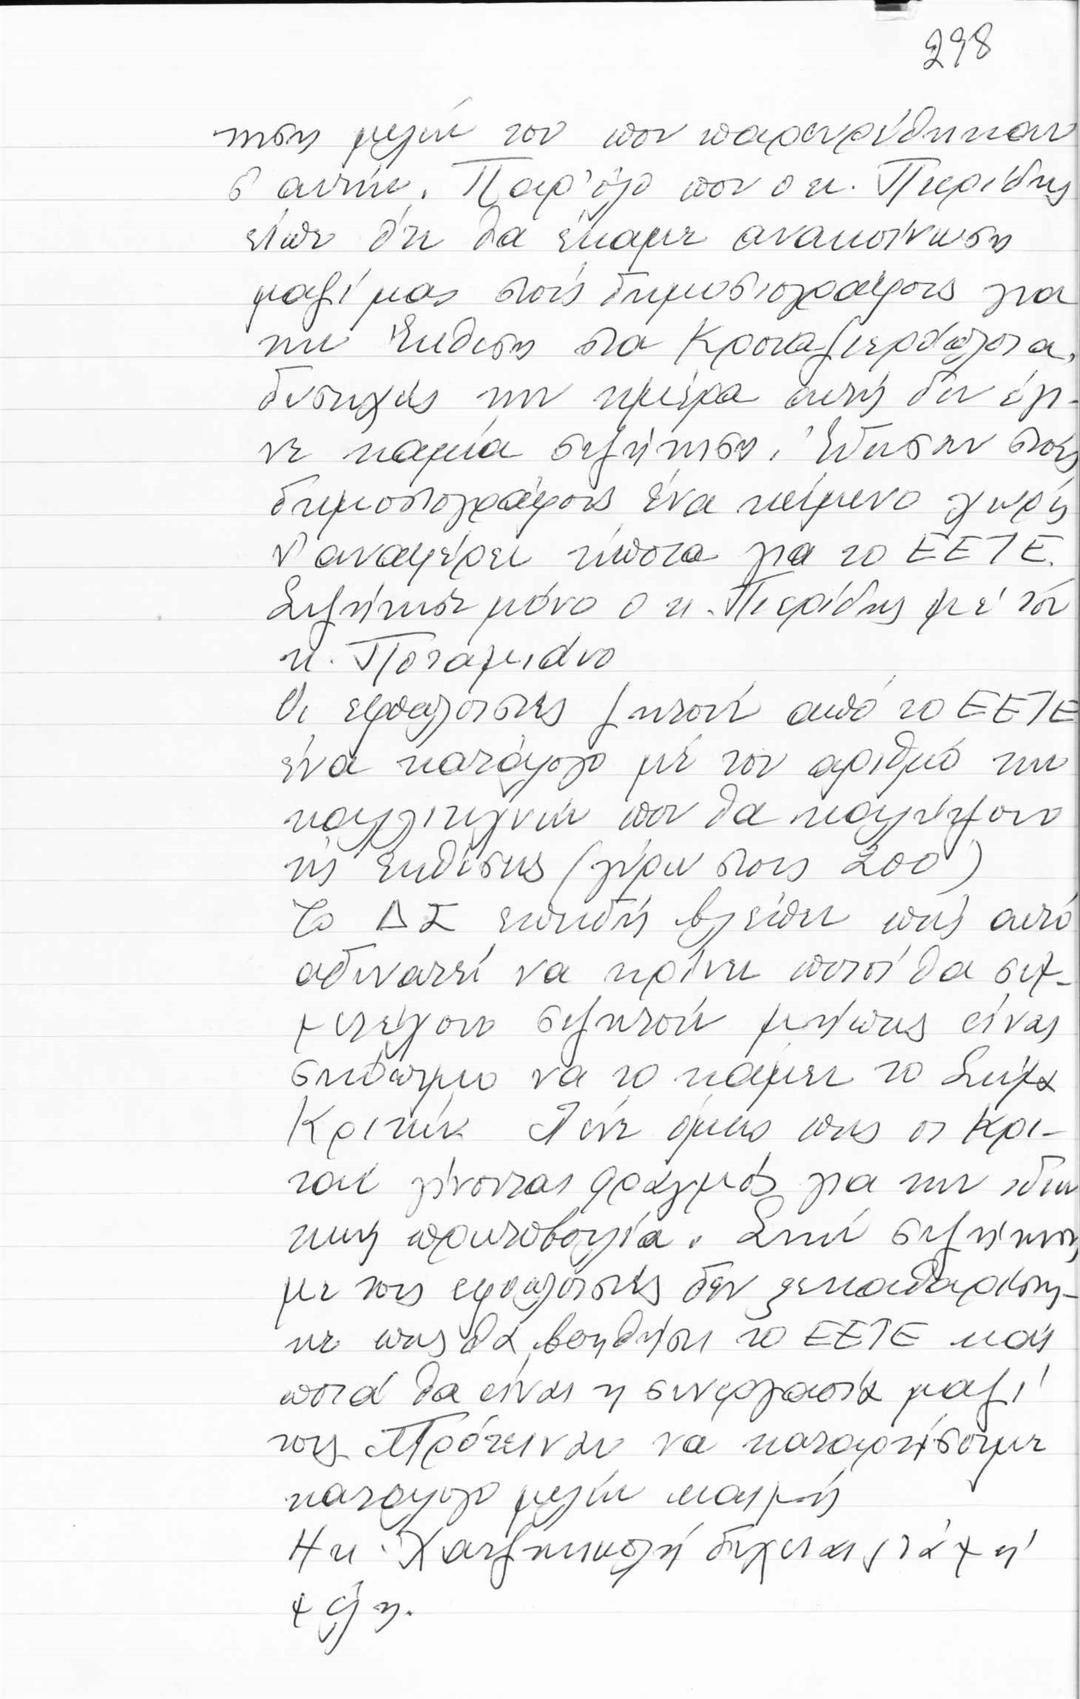 298
τηση μελών του που παρευρέθηκαν
σ' αυτήν. Παρ' όλο που ο κ. Πιερίδης
είπε ότι θα έκαμε ανακοίνωση
μαζί μας στους δημοσιογράφους για
την Έκθεση στα Κρουαζιερόπλοια,
δυστυχώς την ημέρα αυτή δεν έγι-
νε καμμία συζήτηση. Έδωσαν στους
δημοσιογράφους ένα κείμενο χωρίς
ν' αναφέρει τίποτα για το ΕΕΤΕ.
Συζήτησε μόνο ο κ. Πιερίδης με τον
κ. Ποταμιάνο
Οι εφοπλιστές ζητούν από το ΕΕΤΕ
ένα κατάλογο με τον αριθμό των
καλλιτεχνών που θα καλύψουν
τις εκθέσεις (γύρω στους 200)
Το ΔΣ επειδή βλέπει πως αυτό
αδυνατεί να κρίνει ποιοί θα συμ-
μετέχουν συζητούν μήπως είναι
σκόπιμο να το κάμει το Σώμα
Κριτών. Λένε όμως πως οι Κρι-
ταί γίνονται φραγμός για την ιδιω
τική πρωτοβουλία. Στην συζήτηση
με τους εφοπλιστές δεν ξεκαθαρίστη-
κε πως θα βοηθήσει το ΕΕΤΕ και
ποιά θα είναι η συνεργασία μαζί
τους. Πρότειναν να καταρτίσουμε
κατάλογο μελών και μή
Η κ. Χατζηνικολή δέχεται